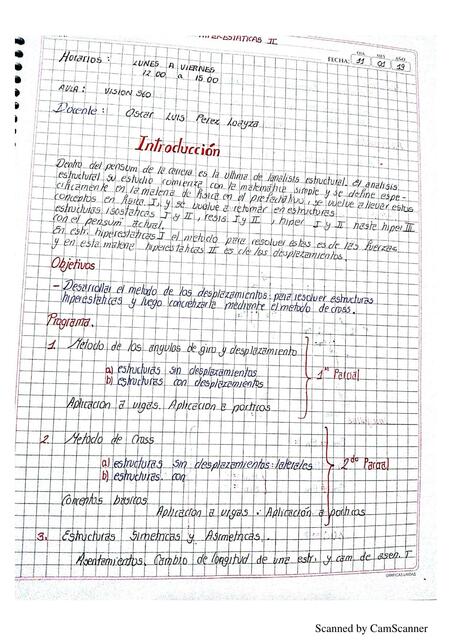 HIPERESTATICAS II
FECHA: DIA 11 MES 01 AÑO 19
Horarios : LUNES A VIERNES
12:00 a 15:00
AULA : VISION 360
Docente : Oscar LUIS Perez Loayza
Introducción
Dentro del pensum de la carrera es la ultima de analisis estructural. El analisis
estructural su estudio comienza con la matematica simple y se define espe-
cificamente en la materia de fisica en el prefacultativo, se vuelve a llevar estos
conceptos en fisica I, y se vuelve a retomar en estructuras
estructuras isostaticas I y II, resis I y II, hiper I y II haste hiper III
con el pensum actual.
En estr. hiperestaticas I el metodo para resolver estas es de las fuerzas
y en esta materia hiperestaticas II es de los desplazamientos.
Objetivos
- Desarrollar el metodo de los desplazamientos para resolver estructuras
hiperestaticas y luego concretizarla mediante el metodo de cross.
Programa.
1. Metodo de los angulos de giro y desplazamiento
a) estructuras sin desplazamientos
b) estructuras con desplazamientos
1er Parcial
Aplicacion a vigas. Aplicacion a porticos
2. Metodo de Cross
a) estructuras sin desplazamientos laterales
b) estructuras con
2do Parcial
Conceptos basicos
Aplicación a vigas . Aplicación a porticos
3. Estructuras Simetricas y Asimetricas.
Asentamientos. Cambio de longitud de una estr. y cam. de asen. T
Scanned by CamScanner